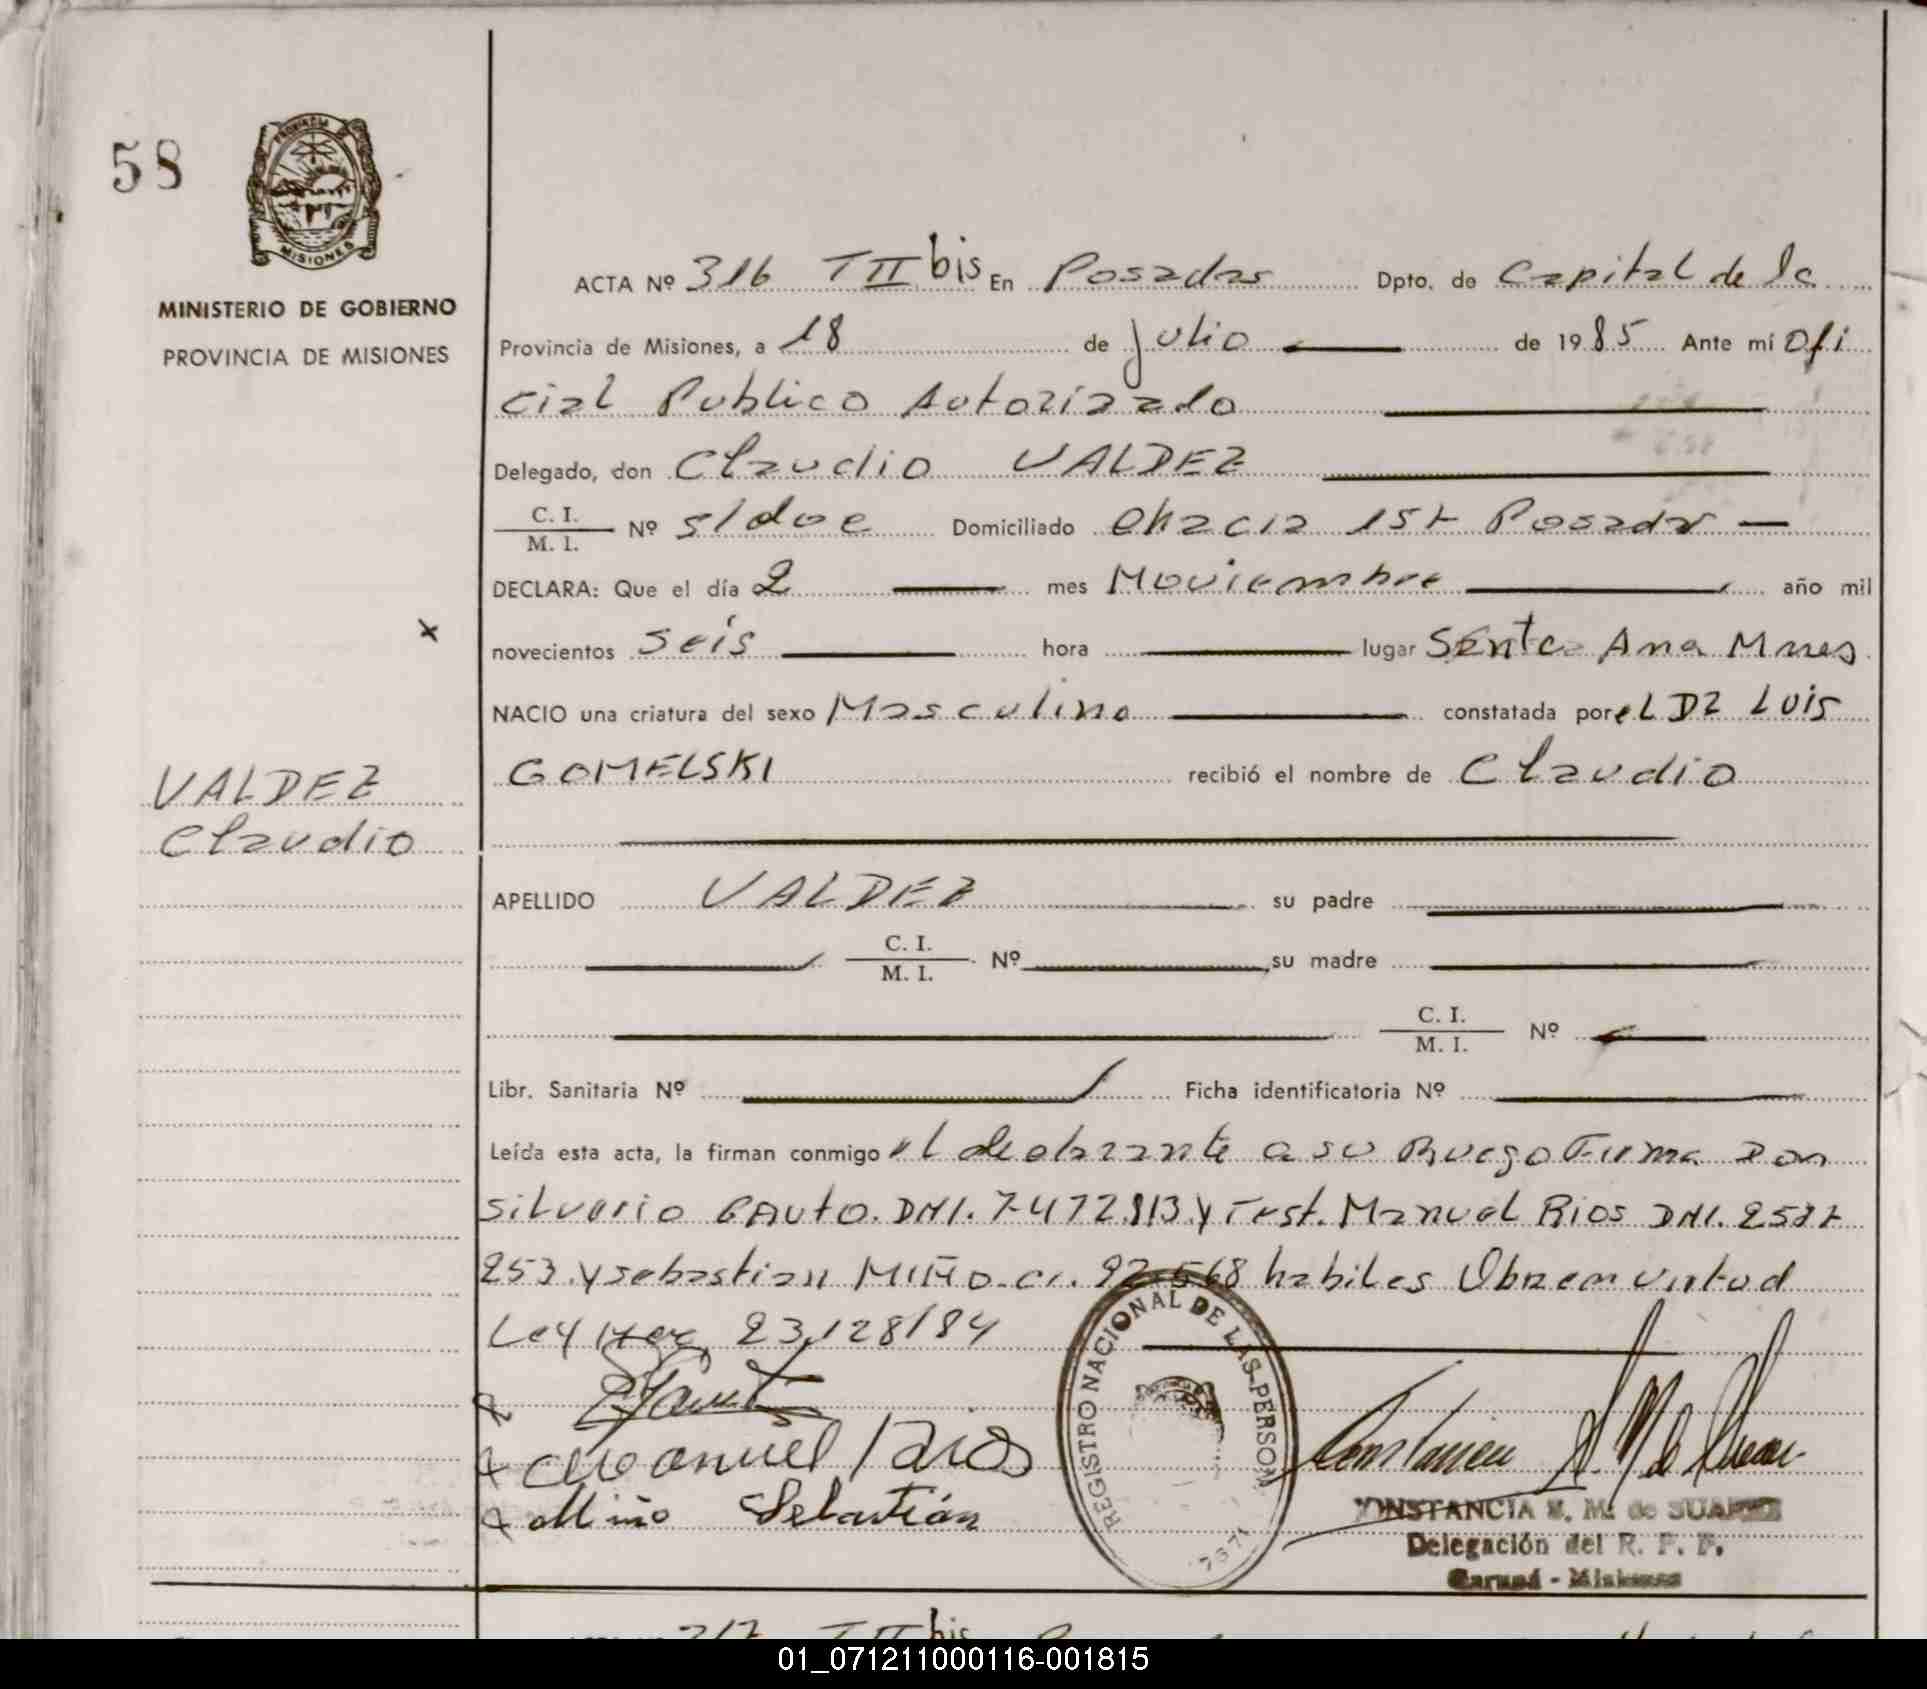 58
PROVINCIA
MISIONES
MINISTERIO DE GOBIERNO
PROVINCIA DE MISIONES
ACTA Nº 316 T II bis En Posadas Dpto. de Capital de la
Provincia de Misiones, a 18 de Julio de 1985 Ante mí Ofi
cial Publico Autorizado
Delegado, don Claudio VALDEZ
C. I.
M. I. Nº s/doc Domiciliado Chacra 151 Posadas
DECLARA: Que el día 2 mes Noviembre año mil
novecientos seis hora lugar Santa Ana Mnes
NACIO una criatura del sexo Masculino constatada por el Dr Luis
GOMELSKI recibió el nombre de Claudio
VALDEZ
Claudio
APELLIDO VALDEZ su padre
C. I.
M. I. Nº su madre
C. I.
M. I. Nº
Libr. Sanitaria Nº Ficha identificatoria Nº
Leída esta acta, la firman conmigo el declarante a su Ruego Firma Don
Silverio GAUTO. DNI. 7.472.813 y Test. Manuel Rios DNI.
253 y Sebastian MIÑO. CI. 92.568 habiles Obra en virtud
Ley 23128/84
Manuel Rios
Miño Sebastián
REGISTRO NACIONAL DE LAS PERSON
7371
CONSTANCIA M. de SUAREZ
Delegación del R. P. P.
Garupá - Misiones
317 T II bis
01_071211000116-001815